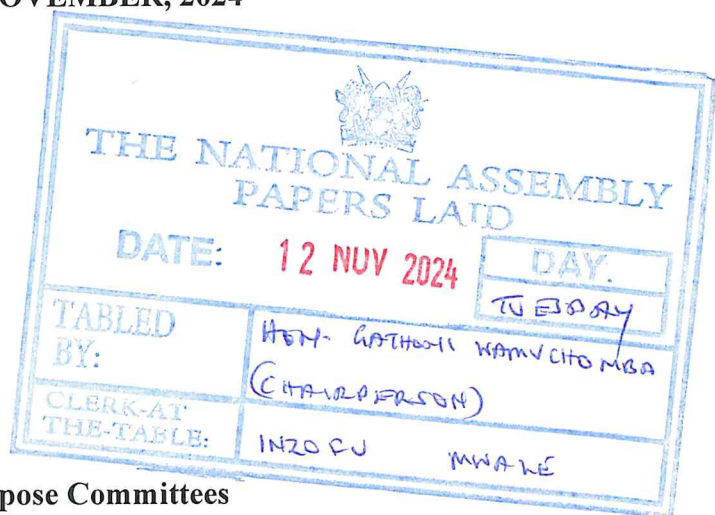 NOVEMBER, 2024
THE NATIONAL ASSEMBLY
PAPERS LAID
DATE: 12 NOV 2024 DAY.
TUESDAY
TABLED BY: HON. GATHONI WAMUCHOMBA
(CHAIRPERSON)
CLERK-AT
THE-TABLE: INZOFU MWALE
pose Committees